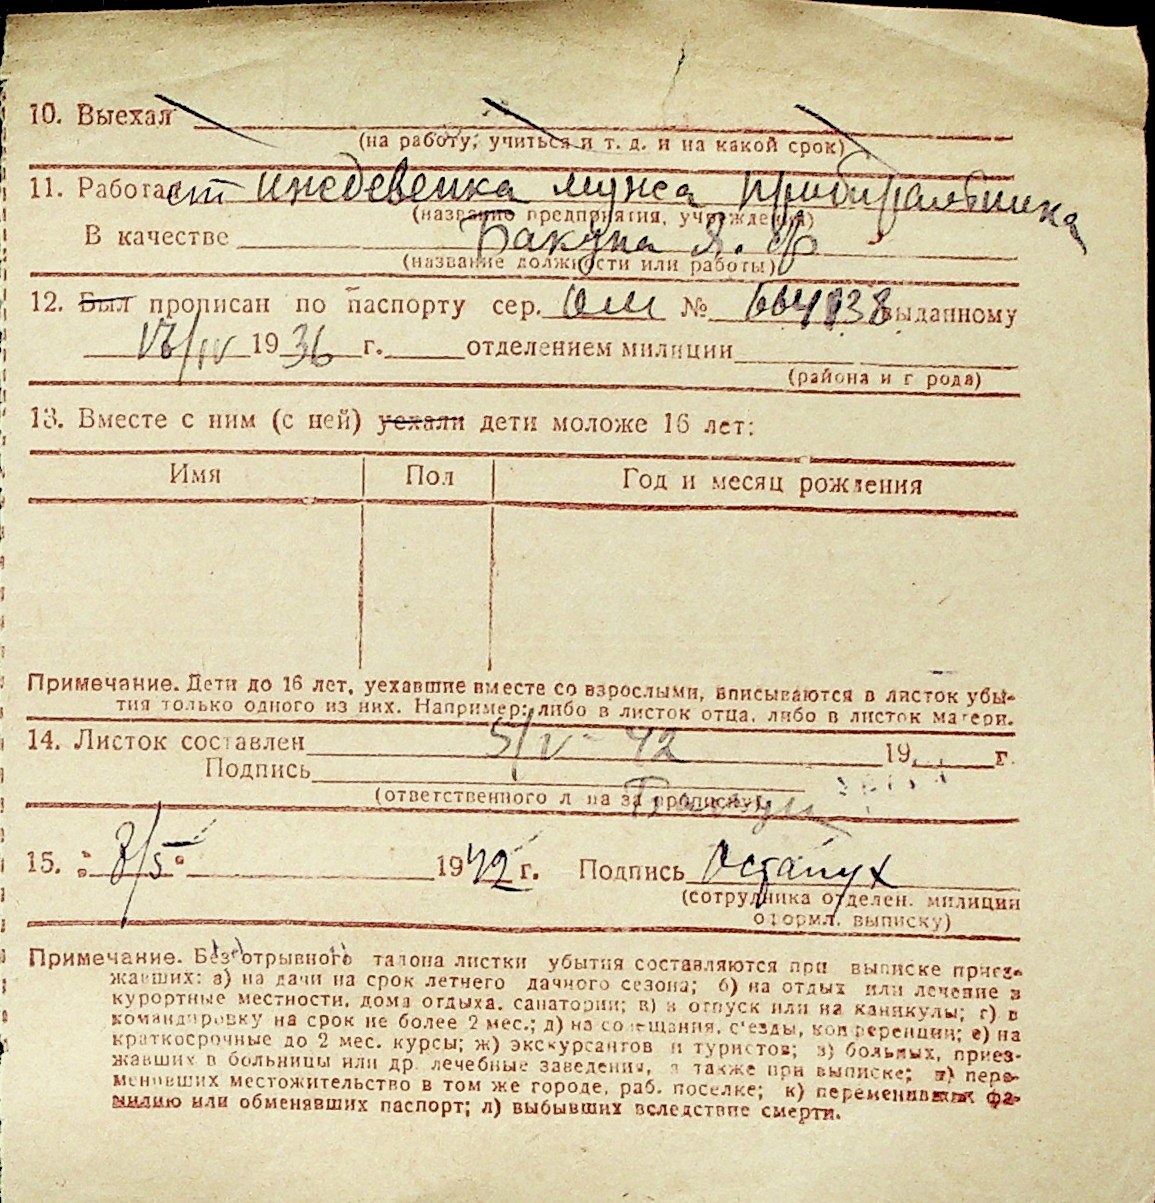 10. Выехал
(на работу, учиться и т. д. и на какой срок)
11. Работает иждевенка мужа прибиральника
(название предприятия, учреждения)
В качестве Бакуна Я. Ф
(название должности или работы)
12. Был прописан по паспорту сер. № выданному
IV 1936 г. отделением милиции
(района и г рода)
13. Вместе с ним (с ней) уехали дети моложе 16 лет:
Имя Пол Год и месяц рождения
Примечание. Дети до 16 лет, уехавшие вместе со взрослыми, вписываются в листок убы-
тия только одного из них. Например: либо в листок отца, либо в листок матери.
14. Листок составлен 5/V - 42 19 г.
Подпись
(ответственного л ца за прописку)
15. „8/5“ 1942 г. Подпись Остапух
(сотрудника отделен. милиции
оформл. выписку)
Примечание. Без отрывного талона листки убытия составляются при выписке приез-
жавших: а) на дачи на срок летнего дачного сезона; б) на отдых или лечение в
курортные местности, дома отдыха, санатории; в) в отпуск или на каникулы; г) в
командировку на срок не более 2 мес.; д) на совещания, с'езды, конференции; е) на
краткосрочные до 2 мес. курсы; ж) экскурсантов и туристов; з) больных, приез-
жавших в больницы или др. лечебные заведения, а также при выписке; и) пере-
менивших местожительство в том же городе, раб. поселке; к) переменивших фа-
милию или обменявших паспорт; л) выбывших вследствие смерти.